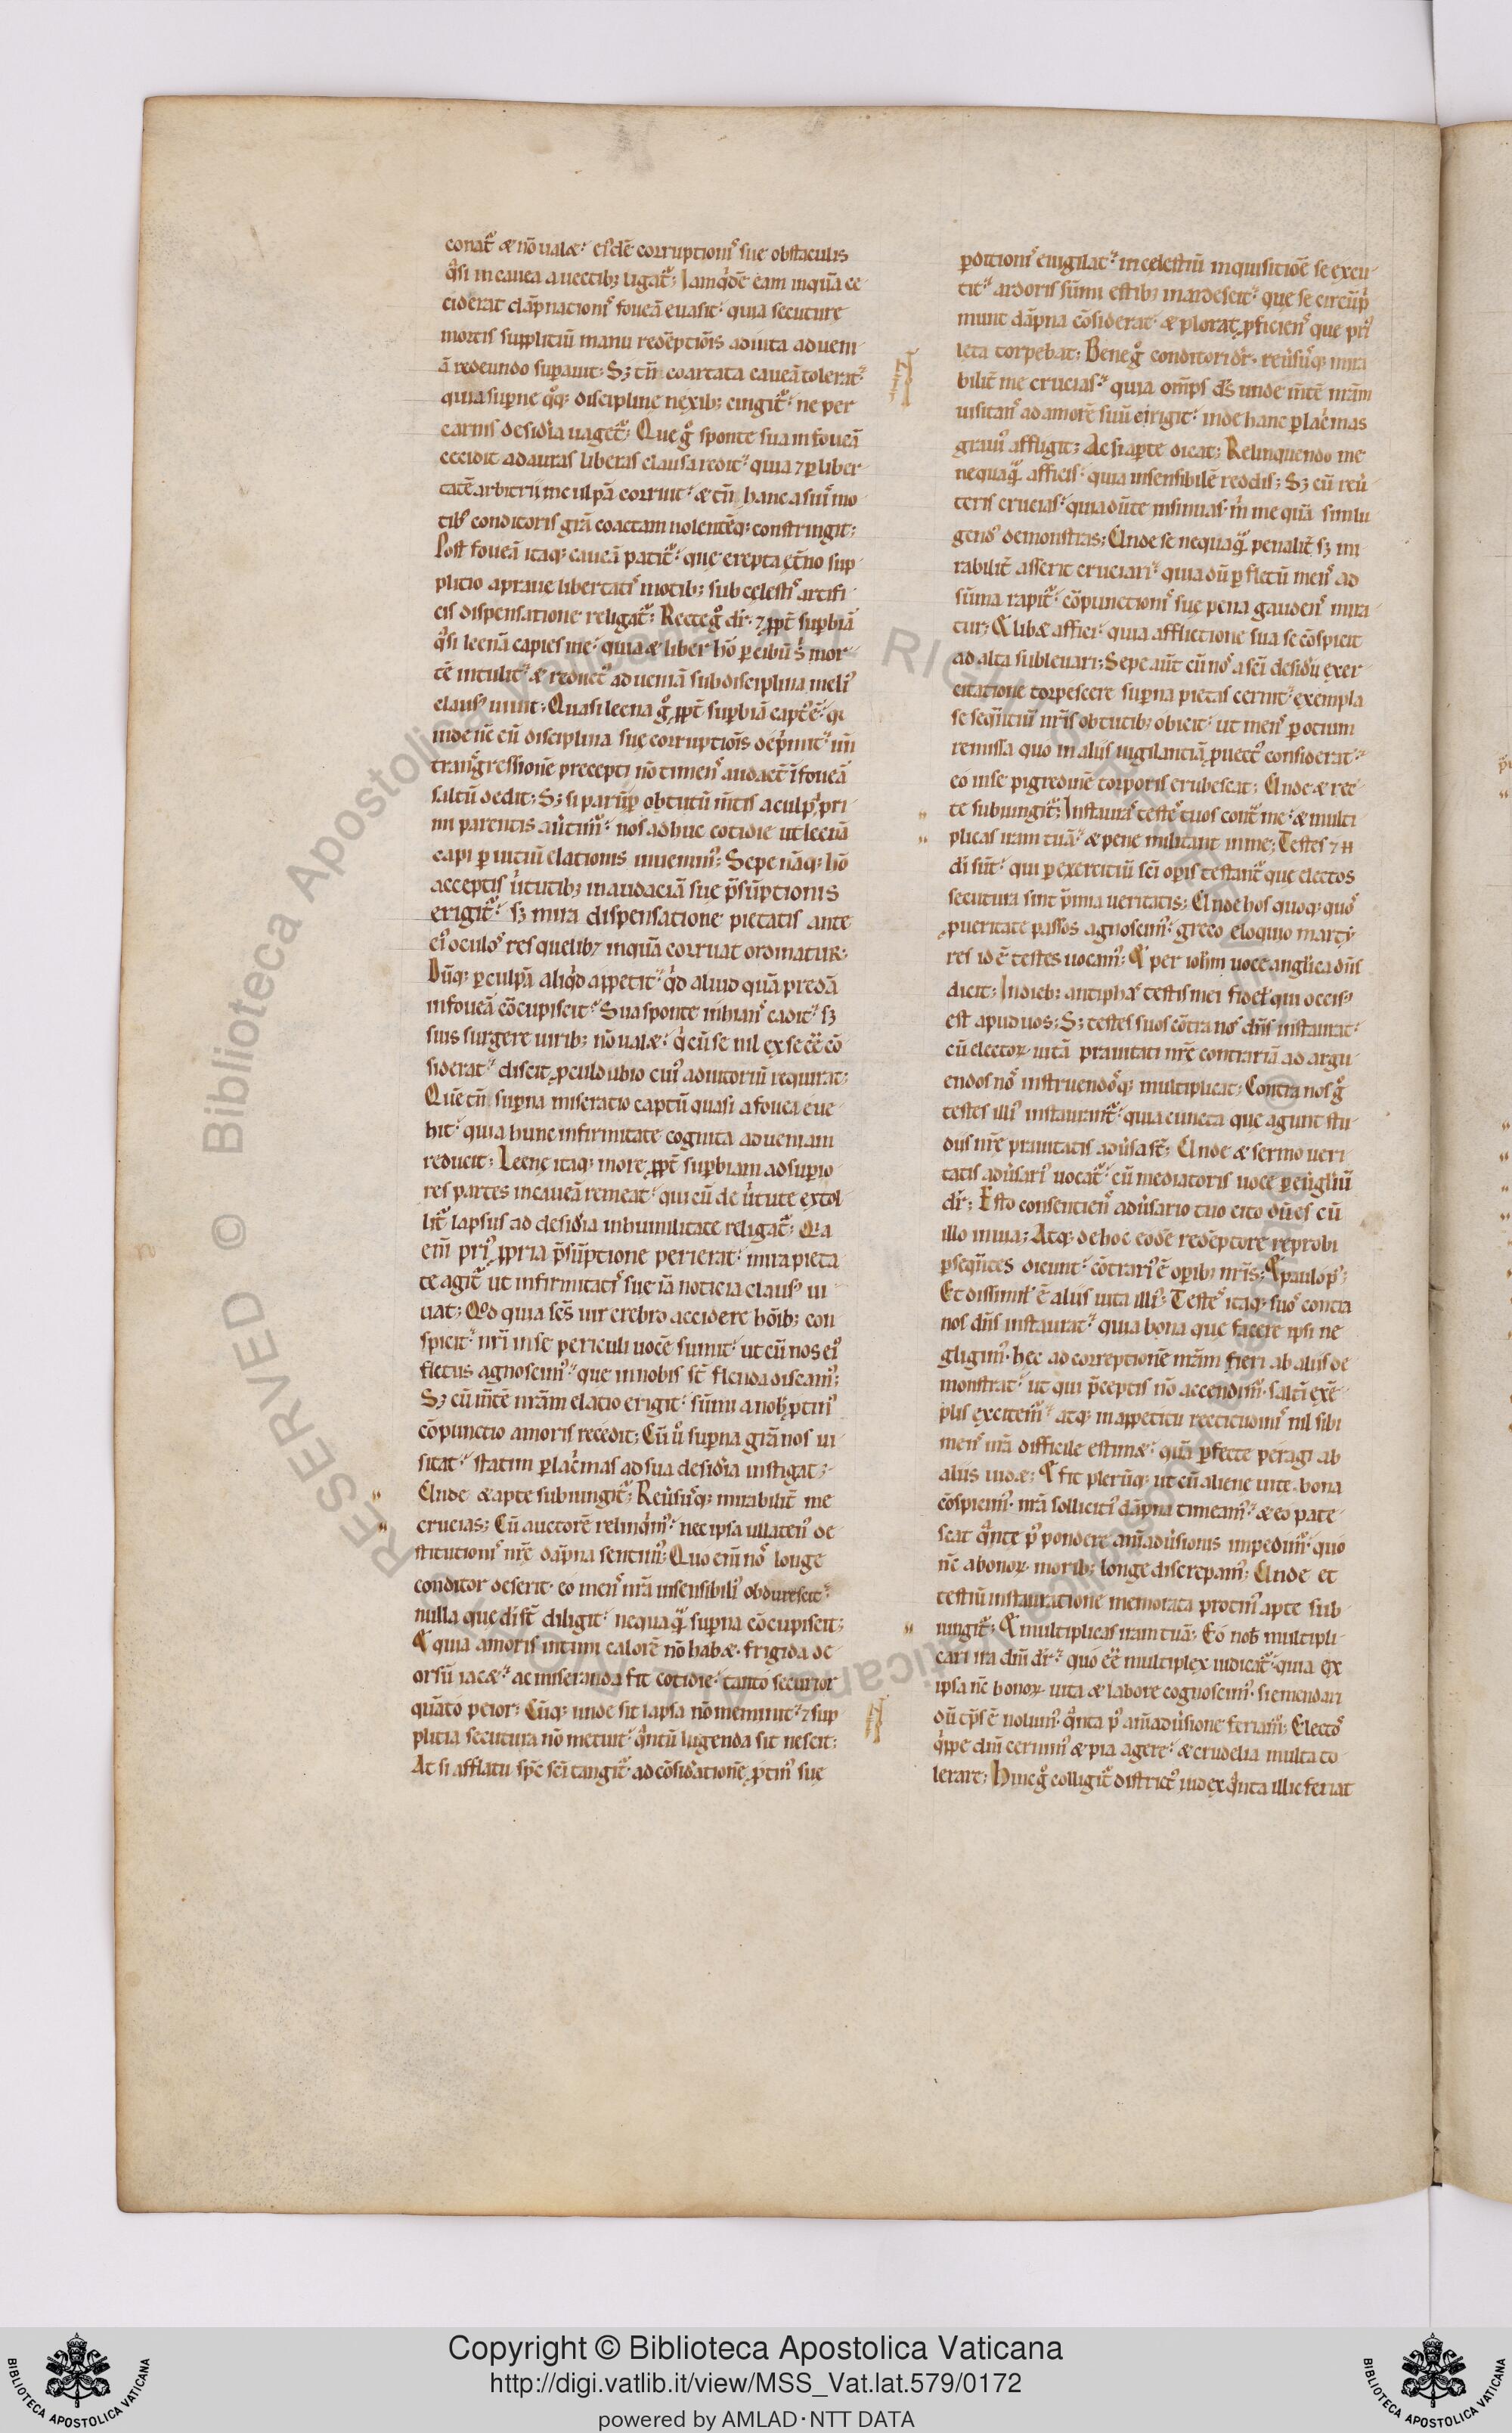 conat᷑ & nō ual&. eisdē corruptionis sue obstaculis
q̊si in cauea a uectib; ligat᷑; Iam q̇dē eam in quā ce
ciderat dāpnationis foueā euasit. quia secuture
mortis suppliciū manu redēptiōis adiuta ad ueni
ā redeundo supauit; S; tn̄ coartata caueā tolerat.
quia supne q̊q; discipline nexib; cingit᷑. ne per
carnis desidia uaget᷑; Que g̊ sponte sua in foueā
cecidit ad auras liberas clausa redit. quia ⁊ ꝑ liber
tatē arbitrii in culpā corruit. & tn̄ hanc a suis mo
tib; conditoris gr̄a coactam nolentēq; constringit;
Post foueā itaq; caueā patit᷑. que erepta et̄no sup
plicio a praue libertatis motib; sub celestis artifi
cis dispensatione religat᷑; Recte g̊ dr̄. ⁊ ꝓpt̄ supbiā
q̊si leenā capies me. quia & liber hō ꝑ cibū s̄ mor
tē intulit. & reduct᷒ ad ueniā sub disciplina meli᷒
claus᷒ uiuit; Quasi leena g̊ ꝓpt̄ supbiā capt᷒ ē. q̄
inde nc̄ eū disciplina sue corruptiōis dep̄mit. un̄
transgressionē precepti nō timens audact̄ ī foueā
saltū dedit; S; si parūp obtutū m̄tis a culpa pri
mi parentis aūtim᷒. nos adhuc cotidie ut leenā
capi ꝑ uitiū elationis inuenim᷒; Sepe nāq; hō
acceptis ūtutib; in audaciā sue p̄sūptionis
erigit᷑. s; mira dispensatione pietatis ante
ei᷒ oculos res quelib; in quā corruat ordinatur;
Dūq; ꝑ culpā aliq̇d appetit. q̇d aliud quā predā
in foueā cōcupiscit. Sua sponte inhians cadit. s;
suis surgere uirib; nō ual&. q̇ cū se nil ex se ēē cō
siderat. discit ꝓculdubio cui᷒ adiutoriū requirat;
Quē tn̄ supna miseratio captū quasi a fouea eue
hit. quia hunc infirmitate cognita ad ueniam
reducit; Leene itaq; more ꝓpt̄ supbiam ad supio
res partes in caueā remeat. qui cū de ūtute extol
lit᷑ lapsus ad desid̄ia in humilitate religat᷑; Q̄a
eni᷒ pri᷒ ꝓpria p̄sūptione perierat. mira pieta
te agit᷑ ut infirmitatis sue iā noticia claus᷒ ui
uat; Qd̄ quia scs̄ uir crebro accidere hōib; con
spicit. nr̄i in se periculi uocē sumit. ut cū nos ei᷒
fletus agnoscim᷒. que in nobis st̄ flenda discam᷒;
S; cū m̄tē nr̄am elatio erigit. sūmi a nob; ꝓtin᷒
cōpunctio amoris recedit; Cū ū supna gr̄a nos ui
sitat. statim ꝑ lac̄mas ad sua desid̄ia instigat;
Unde & apte subiungit᷑; Reūsusq; mirabilit̄ me
crucias; Cū auctorē relinq̇m᷒. nec ipsa ullaten᷒ de
stitutionis nr̄e dāpna sentim᷒; Quo eni᷒ nos longe
conditor deserit. eo mens nr̄a insensibili᷒ obdurescit.
nulla que di st̄ diligit. nequaq̊ supna cōcupiscit;
& quia amoris intimi calorē nō hab&. frigida de
orsū iac&. ac miseranda fit cotidie. tanto securior
quāto peior; Cūq; unde sit lapsa nō meminit. ⁊ sup
plitia secutura nō metuit. q̊ntū lugenda sit nescit;
At si afflatu spc̄ sci᷒ tangit᷑. ad cōsid̄ationē ꝓtin᷒ sue
ꝑditionis euigilat. in celestiū inquisitiōē se excu
tit. ardoris sūmi estib; inardescit. que se circūp̄
munt dāpna cōsiderat. & plorat ꝓficiens que pri᷒
leta torpebat; Bene g̊ conditori dr̄. reūsusq; mira
bilit̄ me crucias. quia om̄ps ds̄ unde m̄tē nr̄am
uisitans ad amorē suū erigit. inde hanc ꝑ lac̄mas
graui᷒ affligit; Ac si apte dicat; Relinquendo me
nequaq̊ afficis. quia insensibilē reddis; S; cū reū
teris crucias. quia dūte insinuas. m̄ me quā simlu
gend᷒ demonstras; Unde se nequaq̊ penalit̄ s; mi
rabilit̄ asserit cruciari. quia dū ꝑ fletū mens ad
sūma rapit᷑. cōpunctionis sue pena gaudens mira
tur; & lib& affici. quia afflictione sua se cōspicit
ad alta subleuari; Sepe aūt cū nos a sci᷒ desidii exer
citatione torpescere supna pietas cernit. exempla
se seqūtiū nr̄is obtutib; obicit. ut mens ꝑ otium
remissa quo in aliis uigilantiā ꝓuect᷒ considerat.
eo in se pigredinē torporis erubescat; Unde & rec
te subiungit᷑; Instauras testes tuos cont̄ me. & multi
plicas iram tuā. & pene militant in me; Testes ⁊ H
di sūt. qui ꝑ exercitiū sci᷒ opis testant᷑ que electos
secutura sint p̄mia ueritatis; Unde hos quoq; quos
ꝓ ueritate passos agnoscim᷒. greco eloquio marty
res id ē testes uocam᷒; & per ioh̄m uoce anglica dn̄s
dicit; In dieb; antiphas testis mei fidel̄ qui occis᷒
est apud uos; S; testes suos cōtra nos dn̄s instaurat.
cū elector̄ uitā prauitati nr̄e contrariā ad argu
endos nos instruendosq; multiplicat; Contra nos g̊
testes illi᷒ instaurant᷑. quia cuncta que agunt stu
diis nr̄e prauitatis adūsa st̄; Unde & sermo ueri
tatis adūsari᷒ uocat᷑. cū mediatoris uoce ꝑ eūgliū
dr̄; Esto consentiens adūsario tuo cito dū es cū
illo in uia; Atq; de hoc eodē redēptore reprobi
ꝑseqūtes dicunt. cōtrari᷒ ē opib; nr̄is; & paulo p᷒;
Et dissimil̄ ē aliis uita illi᷒; Testes itaq; suos contra
nos dn̄s instaurat. quia bona que facere ipsi ne
gligim᷒. hec ad correptionē nr̄am fieri ab aliis de
monstrat. ut qui p̄ceptis nō accendim᷒. saltī exē
plis excitem᷒. atq; in appetitu rectitudinis nil sibi
mens nr̄a difficile estim&. quā ꝑfecte peragi ab
aliis uid&; & fit plerūq; ut cū aliene uite bona
cōspicim᷒. nr̄a solliciti᷒ dāpna timeam᷒. & eo pate
scat q̊nte p᷒ pondere am̄adūsionis impedim᷒. quo
nc̄ a bonor̄ morib; longe discrepam᷒; Unde et
testiū instauratione memorata protin᷒ apte sub
iungit᷑; & multiplicas iram tuā; Eo nob̄ multipli
cari ira dn̄i dr̄. quo ēē multiplex indicat᷑. quia ex
ipsa nc̄ bonor̄ uita & labore cognoscim᷒. si emendari
dū tp̄s ē nolum᷒. q̊nta p᷒ am̄adūsione feriam᷒; Electos
q̇ppe dn̄i cernim᷒ & pia agere. & crudelia multa to
lerare; Hinc g̊ colligit᷑ district᷒ iudex q̊nta illic feriat
Copyright © Biblioteca Apostolica Vaticana
http://digi.vatlib.it/view/MSS_Vat.lat.579/0172
powered by AMLAD·NTT DATA
BIBLIOTECA APOSTOLICA VATICANA
BIBLIOTECA APOSTOLICA VATICANA